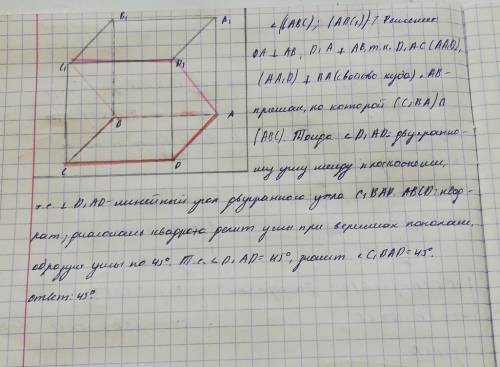 B₁ A₁
C₁ D₁
B A
C D
∠((ABC); (ADC₁))-? Решение:
DA ⊥ AB, D₁A ⊥ AB, т.к. D₁A⊂(AA₁D),
(AA₁D) ⊥ BA (свойство куба). AB-
прямая, по которой (C₁BA)∩
(ABC). Тогда ∠D₁AD = двугранно-
му углу между плоскостями,
т.е. ∠ D₁AD - линейный угол двугранного угла C₁BAD. ABCD: квад-
рат; диагональ квадрата делит углы при вершинах пополам,
образуя углы по 45°. Т.е. ∠D₁AD = 45°, значит ∠C₁BAD = 45°.
ответ: 45°